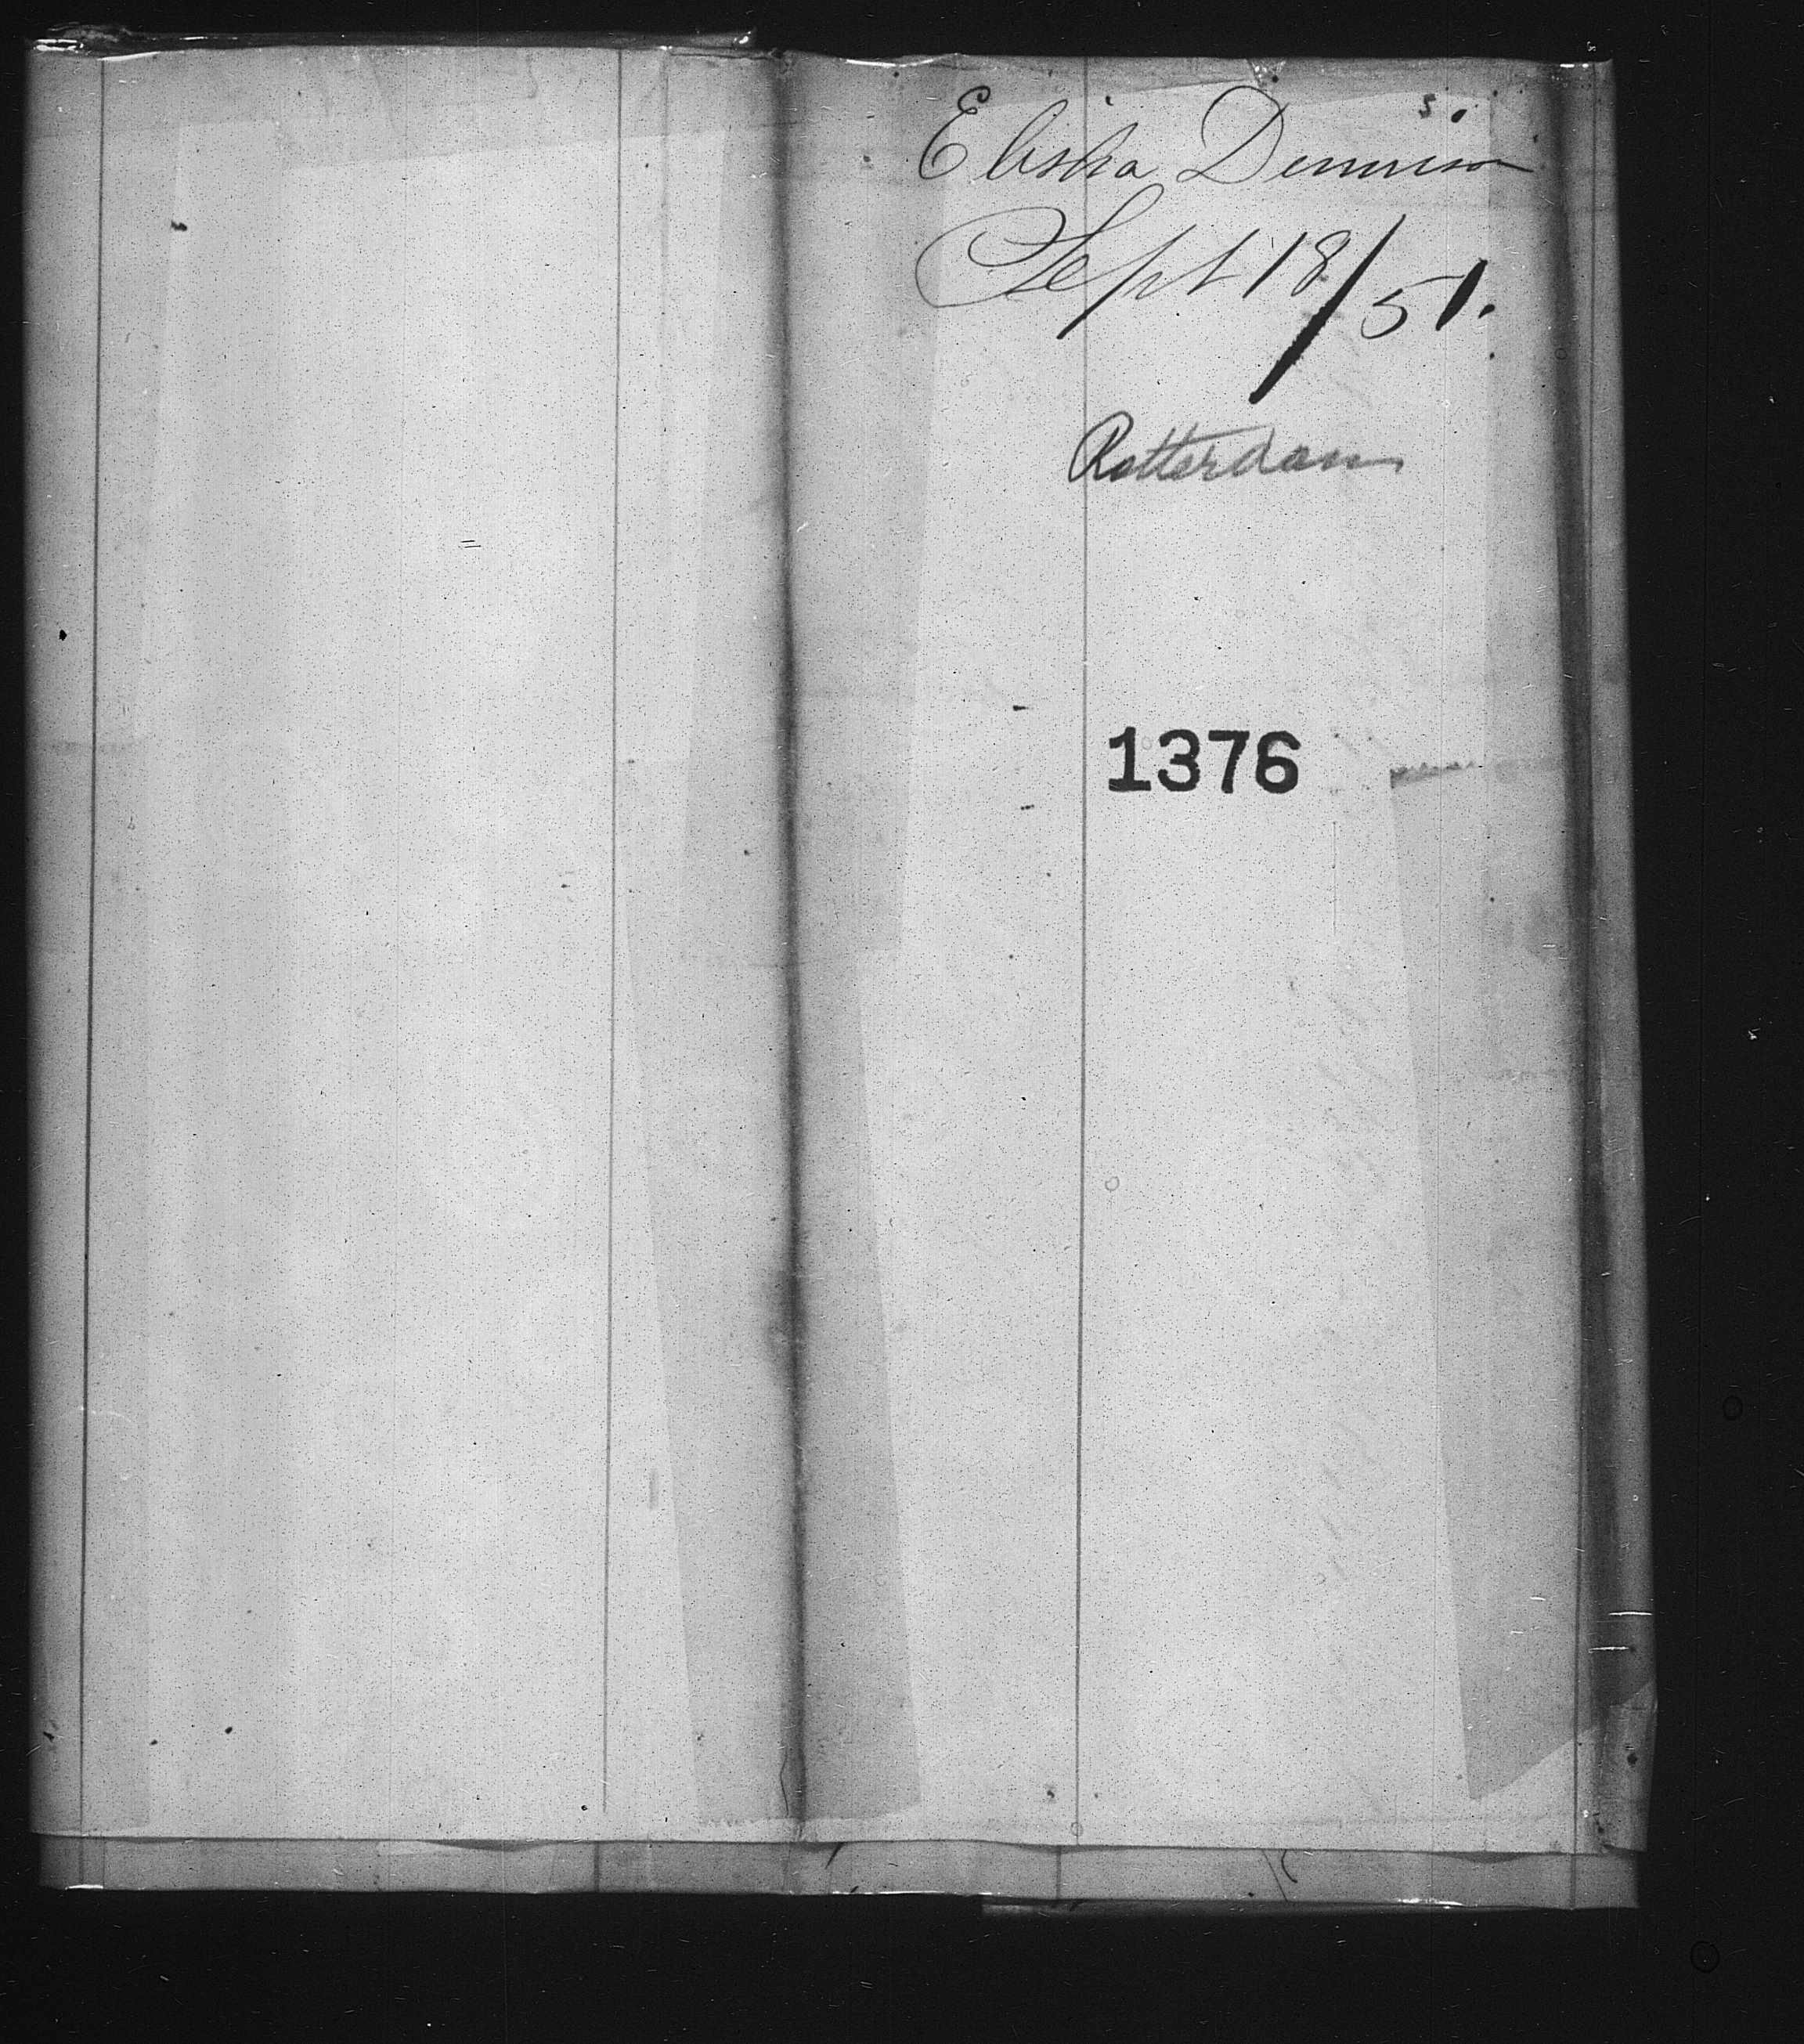 Elisha Dennison
Sept 18/51.
Rotterdam
1376